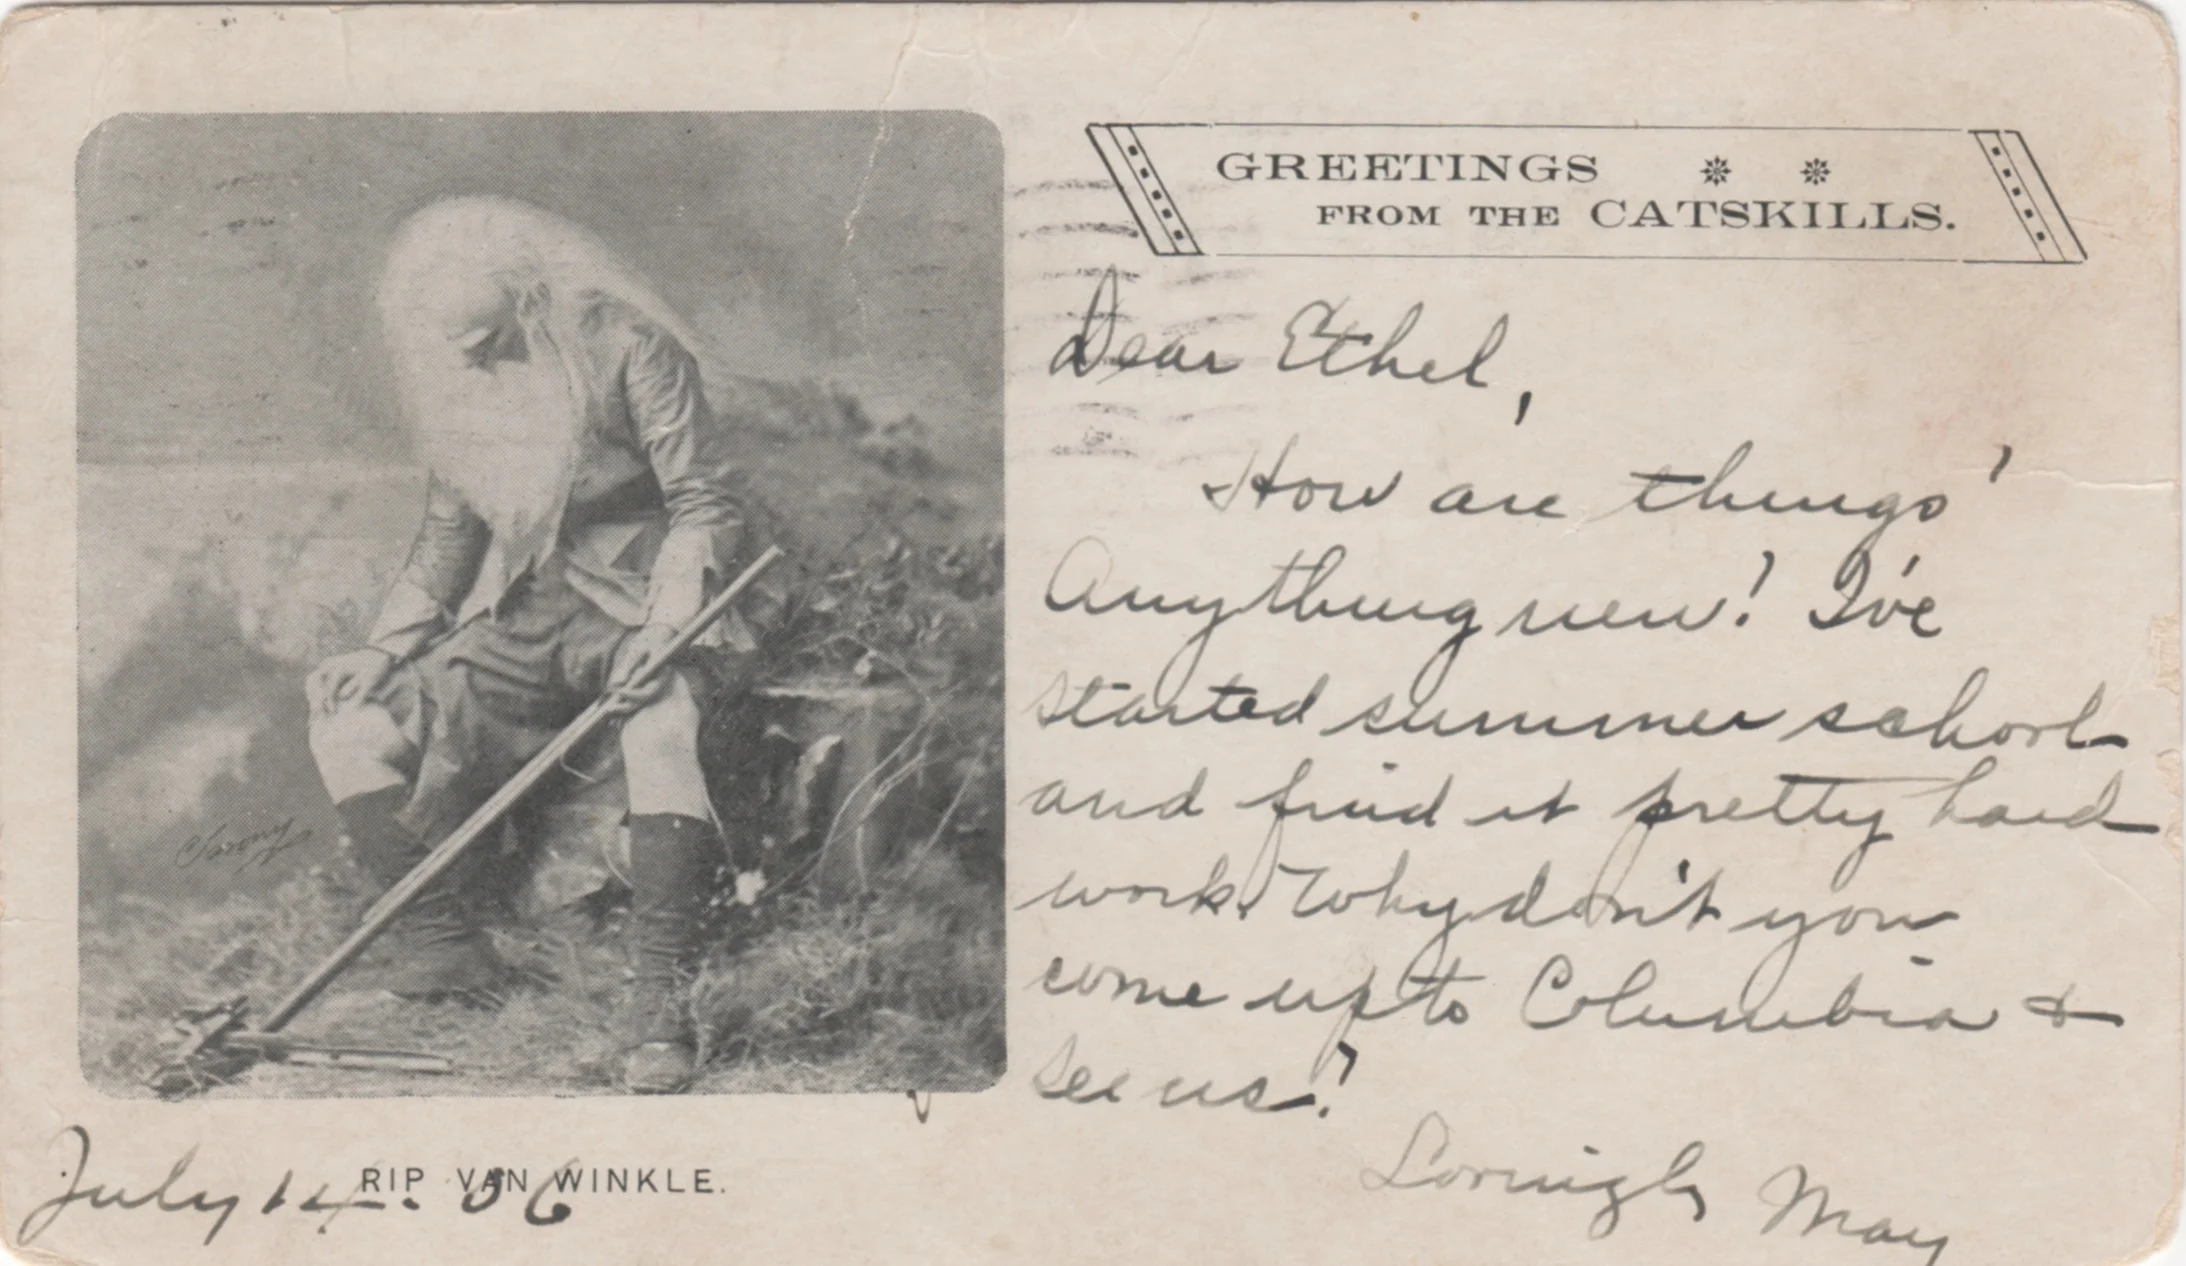 GREETINGS
FROM THE CATSKILLS.
Dear Ethel,
How are things'
Anything new! I've
started summer school
and find it pretty hard
work. Why don't you
come up to Columbia &
see us?
Lovingly May
Sarony
RIP VAN WINKLE.
July 14. 06